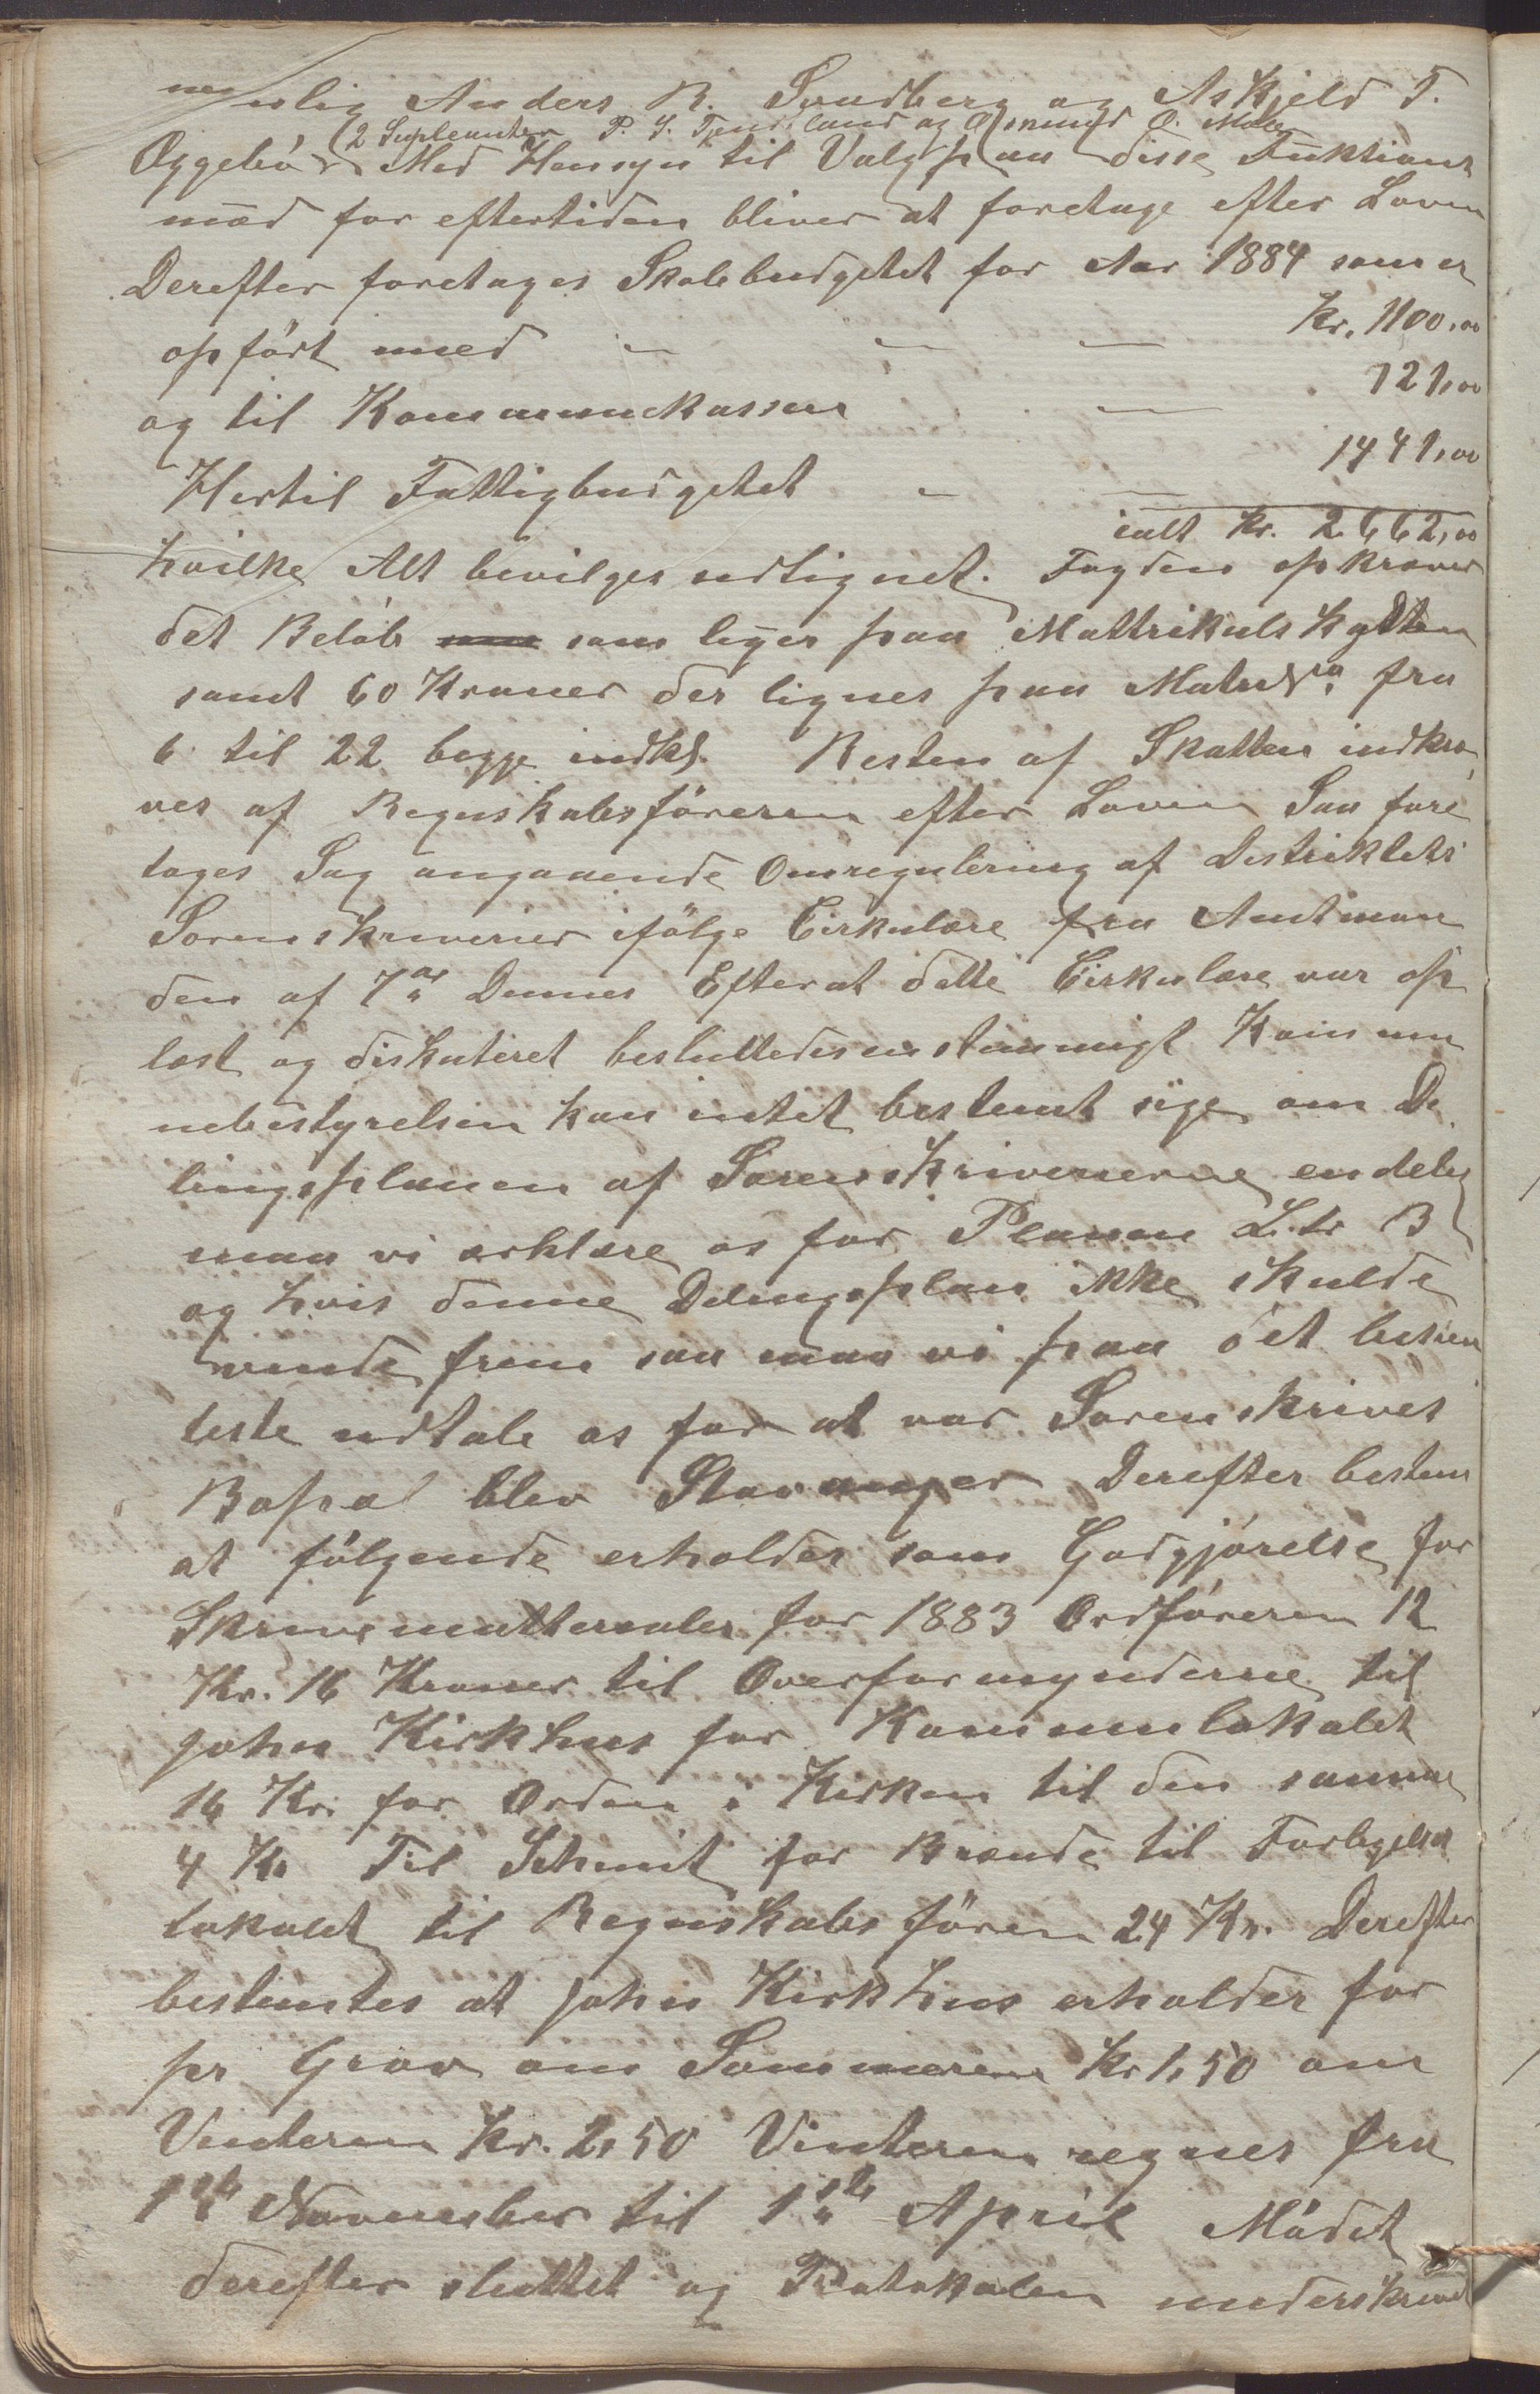 nemlig Anders R. Sundberg og Askjeld T.
(2 Supleanter P. S. Tjendsland og Osmund O. Mele
Oggebö. Med Hensyn til Valg paa disse Funktions
mæd for eftertiden bliver at foretage efter Loven
Derefter foretages Skolebudgetet for Aar 1884 som er
opfört med - - - Kr. 1100,00
og til Kommunekassen - 121,00
Hertil Fattigbudgetet - - 1441,00
ialt Kr. 2662,00
hvilke Alt bevilges udlignet. Fogden opkræver
det Belöb som ligner paa Mattrikulskylden
samt 60 Kroner der lignes paa Matr No fra
6 til 22 begge indkl. Resten af Skatten indkræ
ves af Regnskabsföreren efter Loven Saa fore
tages Sag angaaende Omregulering af Destriktets
Sorenskriverier ifölge Cirkulære fra Amtman
den af 7de Dennes Efterat dette Cirkulære var op
læst og diskuteret besluttedes enstemmigt Kommu
nebestyrelsen kan intet bestemt sige om De
lingsplanen af Sorenskriverierne endelig
maa vi erklære os for Planen Litr B
og hvis denne Delingsplan ikke skulde
vinde frem saa maa vi paa det bestem
teste udtale os for at vor Sorenskrives
Bopæl blev Stavanger Derefter bestem
at fölgende erholder som Godgjörelse for
Skrivematterialer for 1883 Ordföreren 12
Kr. 16 Kroner til Overformynderne til
John Kirkhus for Kommunlokalet
16 Kr. for Orden i Kirken til den samme
4 Kr Til Schmit for Brænde til Forligelses
lokalet til Regnskabsfören 24 Kr. Derefter
bestemtes at John Kirkhus erholder for
pr Grav om Sommeren Kr 1,50 om
Vinteren Kr. 2,50 Vinteren regnes fra
1ste November til 1ste April Mödet
derefter sluttet og Protokolen underskrevet